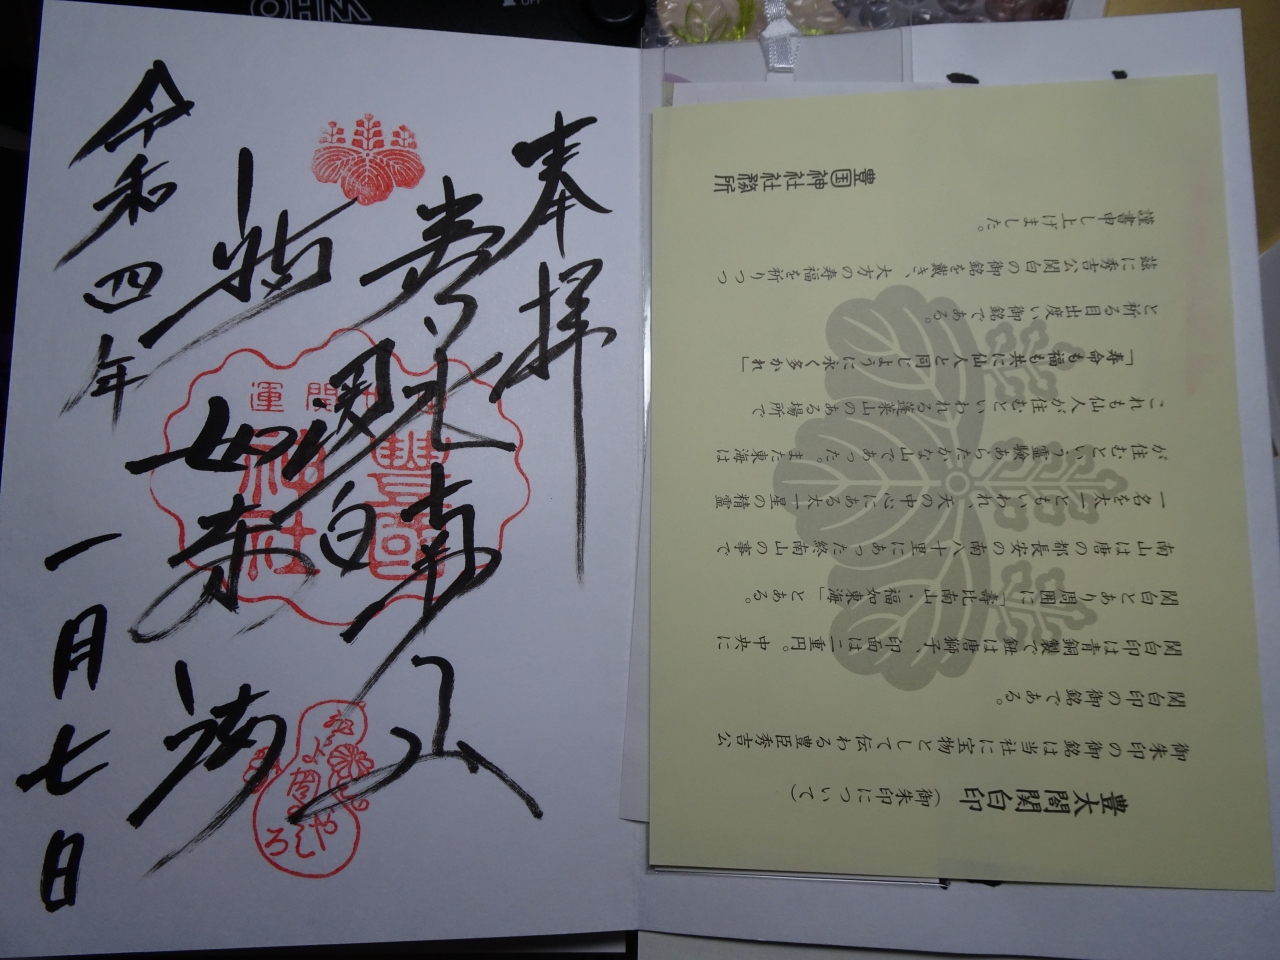 奉拝
寿比南山
関白
福如東海
令和四年一月七日
開運
豊國
神社
豊太閤関白印(御朱印について)
御朱印の御銘は当社に宝物として伝わる豊臣秀吉公
関白印の御銘である。
関白印は青銅製で鈕は唐獅子、印面は二重円。中央に
関白とあり周囲に「寿比南山・福如東海」とある。
南山は唐の都長安の南八十里にあった終南山の事で
一名を太一ともいわれ、天の中心にある太一星の精霊
が住むという霊験あらたかな山であった。また東海は
これも仙人が住むといわれる蓬莱山のある場所で
「寿命も福も共に仙人と同じように永く多かれ」
と祈る目出度い御銘である。
茲に秀吉公関白の御銘を戴き、大方の寿福を祈りつつ
謹書申し上げました。
豊国神社社務所